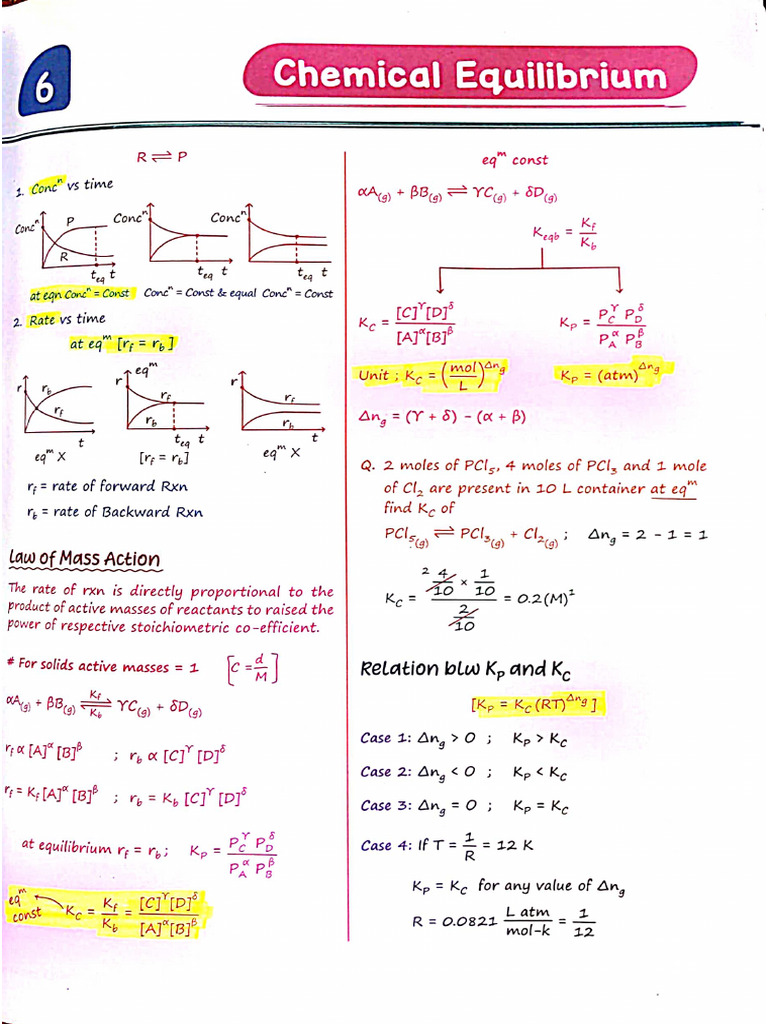 6
Chemical Equilibrium
R ⇌ P
1. Concⁿ vs time
Concⁿ P R t_eq t
Concⁿ t_eq t
Concⁿ t_eq t
at eqn Concⁿ = Const Concⁿ = Const & equal Concⁿ = Const
2. Rate vs time
at eqᵐ [r_f = r_b]
r r_b r_f t
eqᵐ X
r eqᵐ r_f r_b t_eq t
[r_f = r_b]
r r_f r_b t
eqᵐ X
r_f = rate of forward Rxn
r_b = rate of Backward Rxn
Law of Mass Action
The rate of rxn is directly proportional to the
product of active masses of reactants to raised the
power of respective stoichiometric co-efficient.
# For solids active masses = 1 [C = d/M]
αA(g) + βB(g) ⇌ γC(g) + δD(g) K_f K_b
r_f α [A]^α [B]^β ; r_b α [C]^γ [D]^δ
r_f = K_f [A]^α [B]^β ; r_b = K_b [C]^γ [D]^δ
at equilibrium r_f = r_b ; K_P = P_C^γ P_D^δ / P_A^α P_B^β
eqᵐ const K_C = K_f/K_b = [C]^γ[D]^δ / [A]^α[B]^β
eqᵐ const
αA(g) + βB(g) ⇌ γC(g) + δD(g)
K_eqb = K_f/K_b
K_C = [C]^γ[D]^δ / [A]^α[B]^β K_P = P_C^γ P_D^δ / P_A^α P_B^β
Unit ; K_C = (mol/L)^Δn_g K_P = (atm)^Δn_g
Δn_g = (γ + δ) - (α + β)
Q. 2 moles of PCl₅, 4 moles of PCl₃ and 1 mole
of Cl₂ are present in 10 L container at eqᵐ
find K_C of
PCl₅(g) ⇌ PCl₃(g) + Cl₂(g) ; Δn_g = 2 - 1 = 1
K_C = (2 4/10 × 1/10) / (2/10) = 0.2(M)¹
Relation b/w K_P and K_C
[K_P = K_C (RT)^Δn_g]
Case 1: Δn_g > 0 ; K_P > K_C
Case 2: Δn_g < 0 ; K_P < K_C
Case 3: Δn_g = 0 ; K_P = K_C
Case 4: If T = 1/R = 12 K
K_P = K_C for any value of Δn_g
R = 0.0821 L atm/mol-k = 1/12